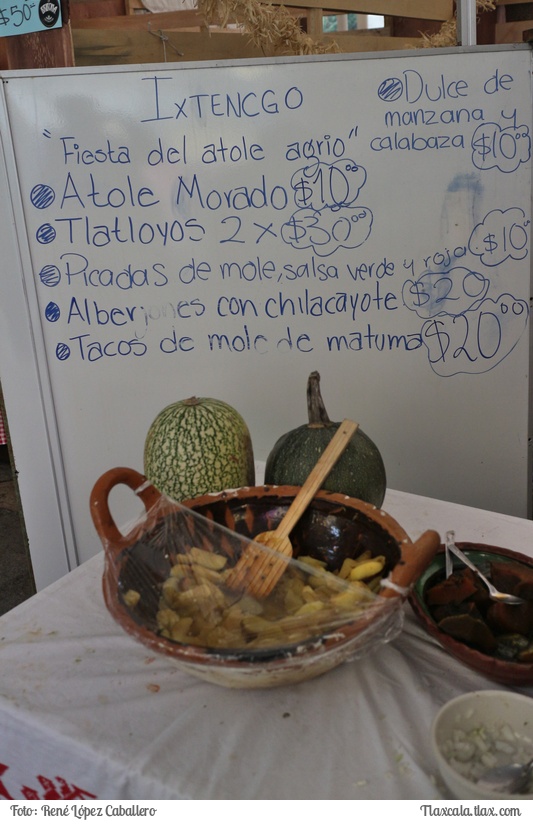 $50.00
IXTENCGO
"Fiesta del atole agrio"
Atole Morado $10.00
Tlatloyos 2 x $30.00
Picadas de mole, salsa verde y roja $10
Alberjones con chilacayote $20
Tacos de mole de matuma $20.00
Dulce de
manzana y
calabaza $10.00
Foto: René López Caballero
Tlaxcala.tlax.com